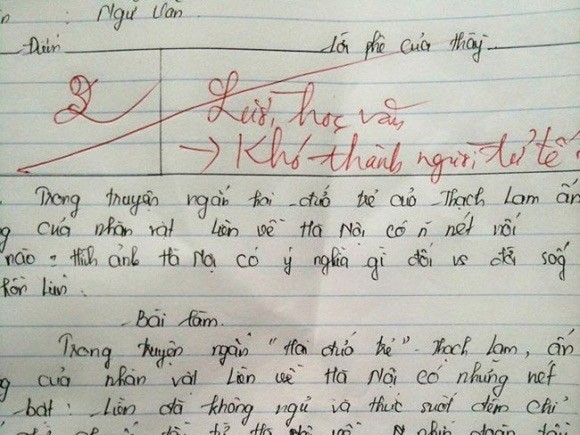 : Ngữ Văn
Điểm
Lời phê của thầy
2
Lười học văn,
→ Khó thành người tử tế
Trong truyện ngắn hai đứa trẻ của Thạch Lam ấn
của nhân vật Liên về Hà Nội có n nét nổi
nào = hình ảnh Hà Nội có ý nghĩa gì đối vs đời sog
hồn Liên.
Bài làm.
Trong truyện ngắn "Hai đứa trẻ" - Thạch Lam, ấn
của nhân vật Liên về Hà Nội có những nét
bật: Liên đã không ngủ và thức suốt đêm chỉ